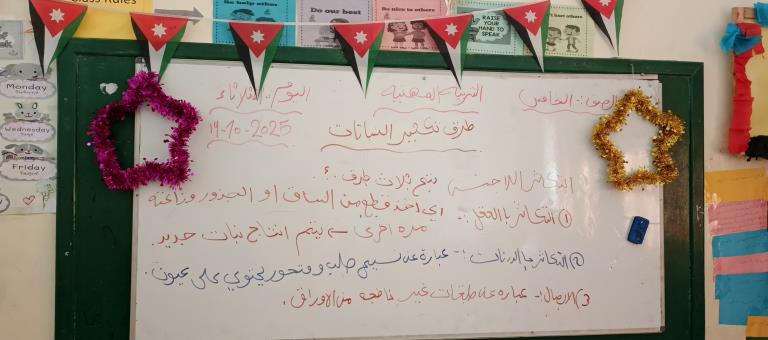 Class Rules
help others
Do our best
Be nice to others
RAISE YOUR HAND TO SPEAK
Monday
Wednesday
Friday
الصف:- الخامس
التربية المهنية
اليوم:- الثلاثاء
14-10-2025
طرق تكثير النباتات
التكاثر اللاجنسي يتم بثلاث طرق:
① التكاثر بالعقل:- اي اخذ قطع من الساق او الجذور وزراعته
مره اخرى يتم انتاج نبات جديد.
② التكاثر بالدرنات:- عبارة عن نسيج صلب و متحور يحتوي على عيون.
3) الابصال:- عبارة عن طبقات غير ناضجه من الاوراق.